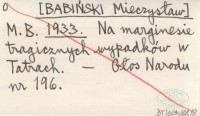 [BABIŃSKI Mieczysław]
M.B. 1933. Na marginesie
tragicznych wypadków w
Tatrach. — Głos Narodu
nr 196.